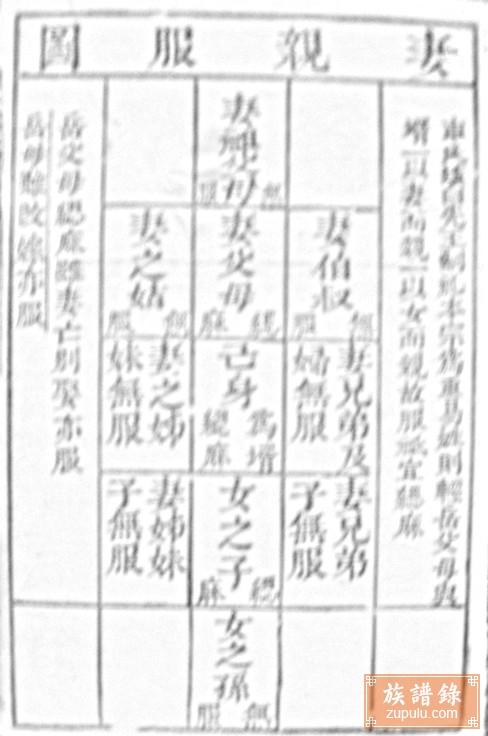 妻親服圖
車氏垓曰先王制禮本宗為重異姓則輕岳父母與
壻一以妻而親一以女而親故服祗宜緦麻
妻母
無服
妻伯叔
無服
妻父母
緦麻
妻之姑
無服
妻兄弟及
婦無服
己身
為壻
緦麻
妻之姊
妹無服
妻兄弟
子無服
女之子
緦麻
妻姊妹
子無服
女之孫
無服
岳父母緦麻雖妻亡別娶亦服
岳母雖改嫁亦服
族譜錄
zupulu.com